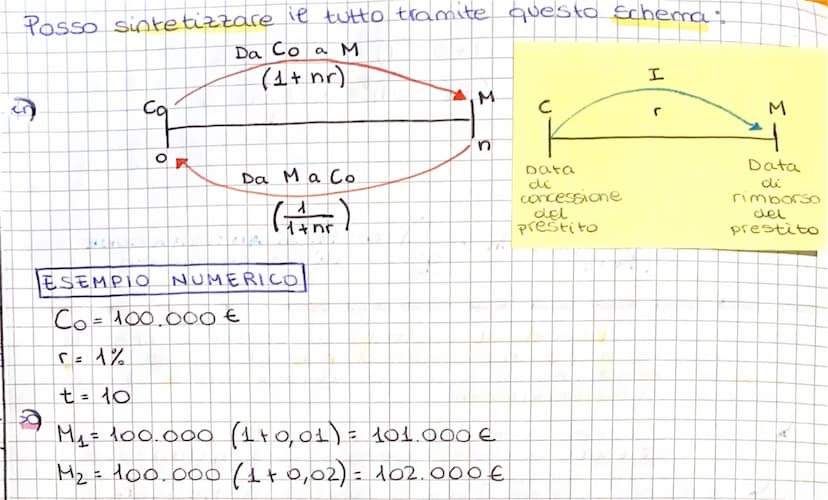 Posso sintetizzare il tutto tramite questo schema:
Da Co a M
(1+nr)
Co
M
0
n
Da M a Co
(1/1+nr)
I
C
r
M
Data
di
concessione
del
prestito
Data
di
rimborso
del
prestito
ESEMPIO NUMERICO
Co = 100.000 €
r = 1%
t = 10
M1 = 100.000 (1+0,01) = 101.000 €
M2 = 100.000 (1+0,02) = 102.000 €